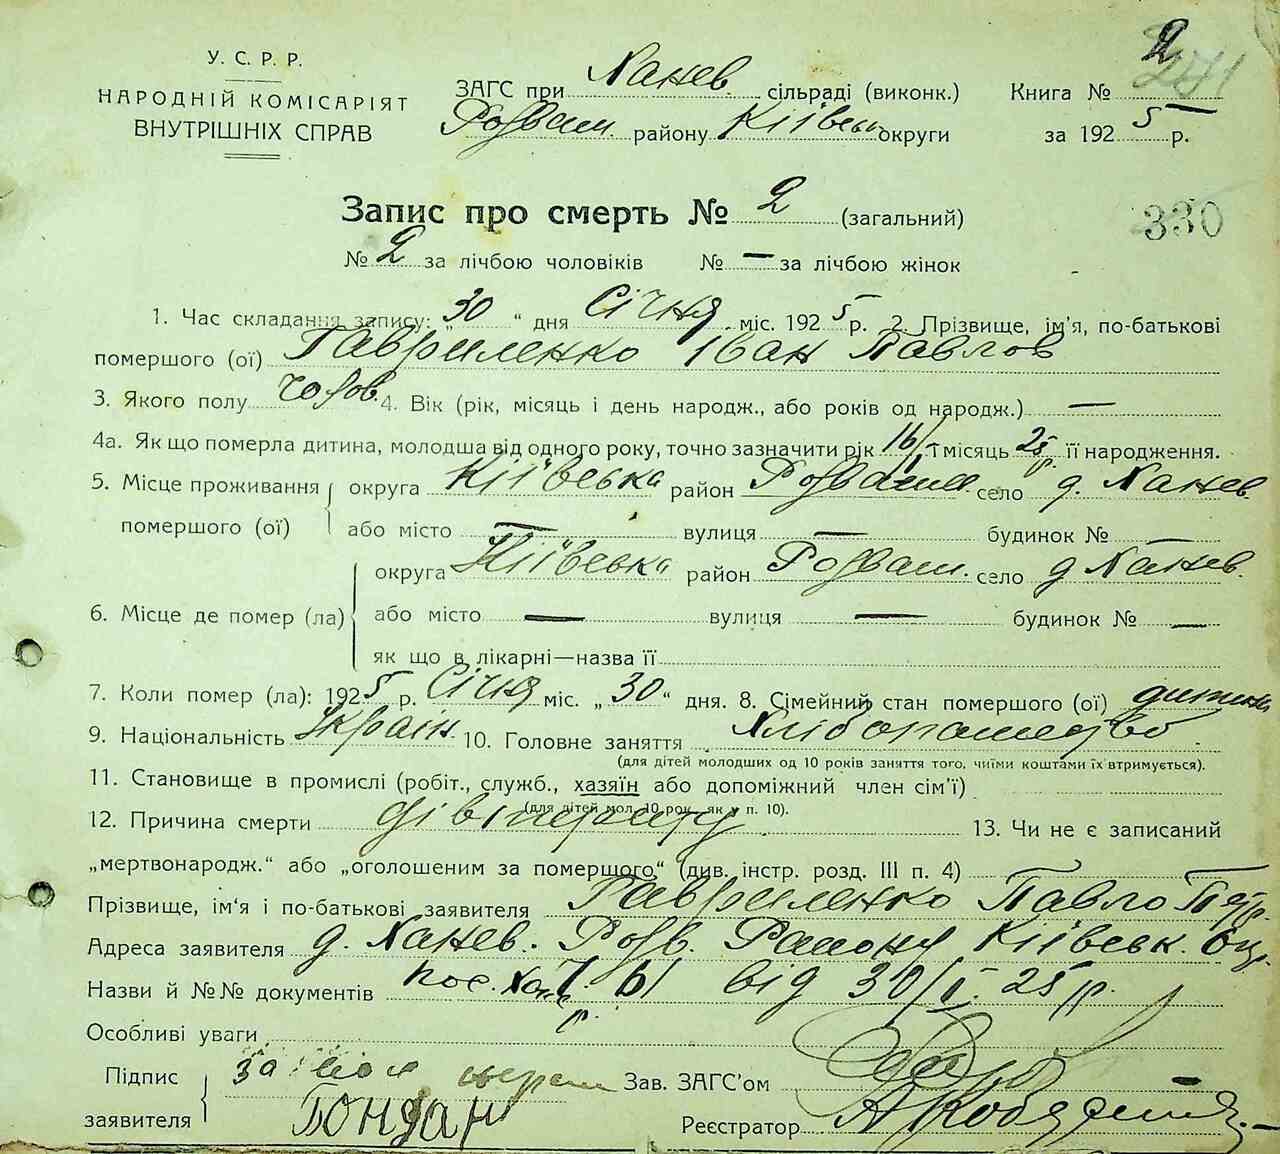 У. С. Р. Р.
НАРОДНІЙ КОМІСАРІЯТ
ВНУТРІШНІХ СПРАВ
ЗАГС при Ханев. сільраді (виконк.)
Розваж. району Київськ округи
Книга № 2
за 1925 р.
Запис про смерть № 2 (загальний)
330
№ 2 за лічбою чоловіків № — за лічбою жінок
1. Час складання запису: „30“ дня Січня міс. 1925 р. 2. Прізвище, ім'я, по-батькові
помершого (ої) Гавриленко Іван Павлов
3. Якого полу чолов. 4. Вік (рік, місяць і день народж., або років од народж.) —
4а. Як що померла дитина, молодша від одного року, точно зазначити рік 16/I і місяць 25 р. її народження.
5. Місце проживання помершого (ої) округа Київська район Розваж село д. Ханев
або місто — вулиця — будинок № —
6. Місце де помер (ла) округа Київська район Розваж. село д Ханев.
або місто — вулиця — будинок № —
як що в лікарні—назва її
7. Коли помер (ла): 1925 р. Січня міс. „30“ дня. 8. Сімейний стан помершого (ої) дитина
9. Національність Україн. 10. Головне заняття Хліборобство
(для дітей молодших од 10 років заняття того, чиїми коштами їх втримується).
11. Становище в промислі (робіт., служб., хазяїн або допоміжний член сім'ї)
(для дітей мол. 10 рок. як у п. 10).
12. Причина смерти 13. Чи не є записаний
„мертвонародж.“ або „оголошеним за помершого“ (див. інстр. розд. III п. 4)
Прізвище, ім'я і по-батькові заявителя Гавриленко Павло Петр.
Адреса заявителя д. Ханев. Розв. Району Київськ. Окр.
Назви й №№ документів пос. від 30/I 25 р.
Особливі уваги
Підпис заявителя за
Бондар
Зав. ЗАГС'ом
Реєстратор